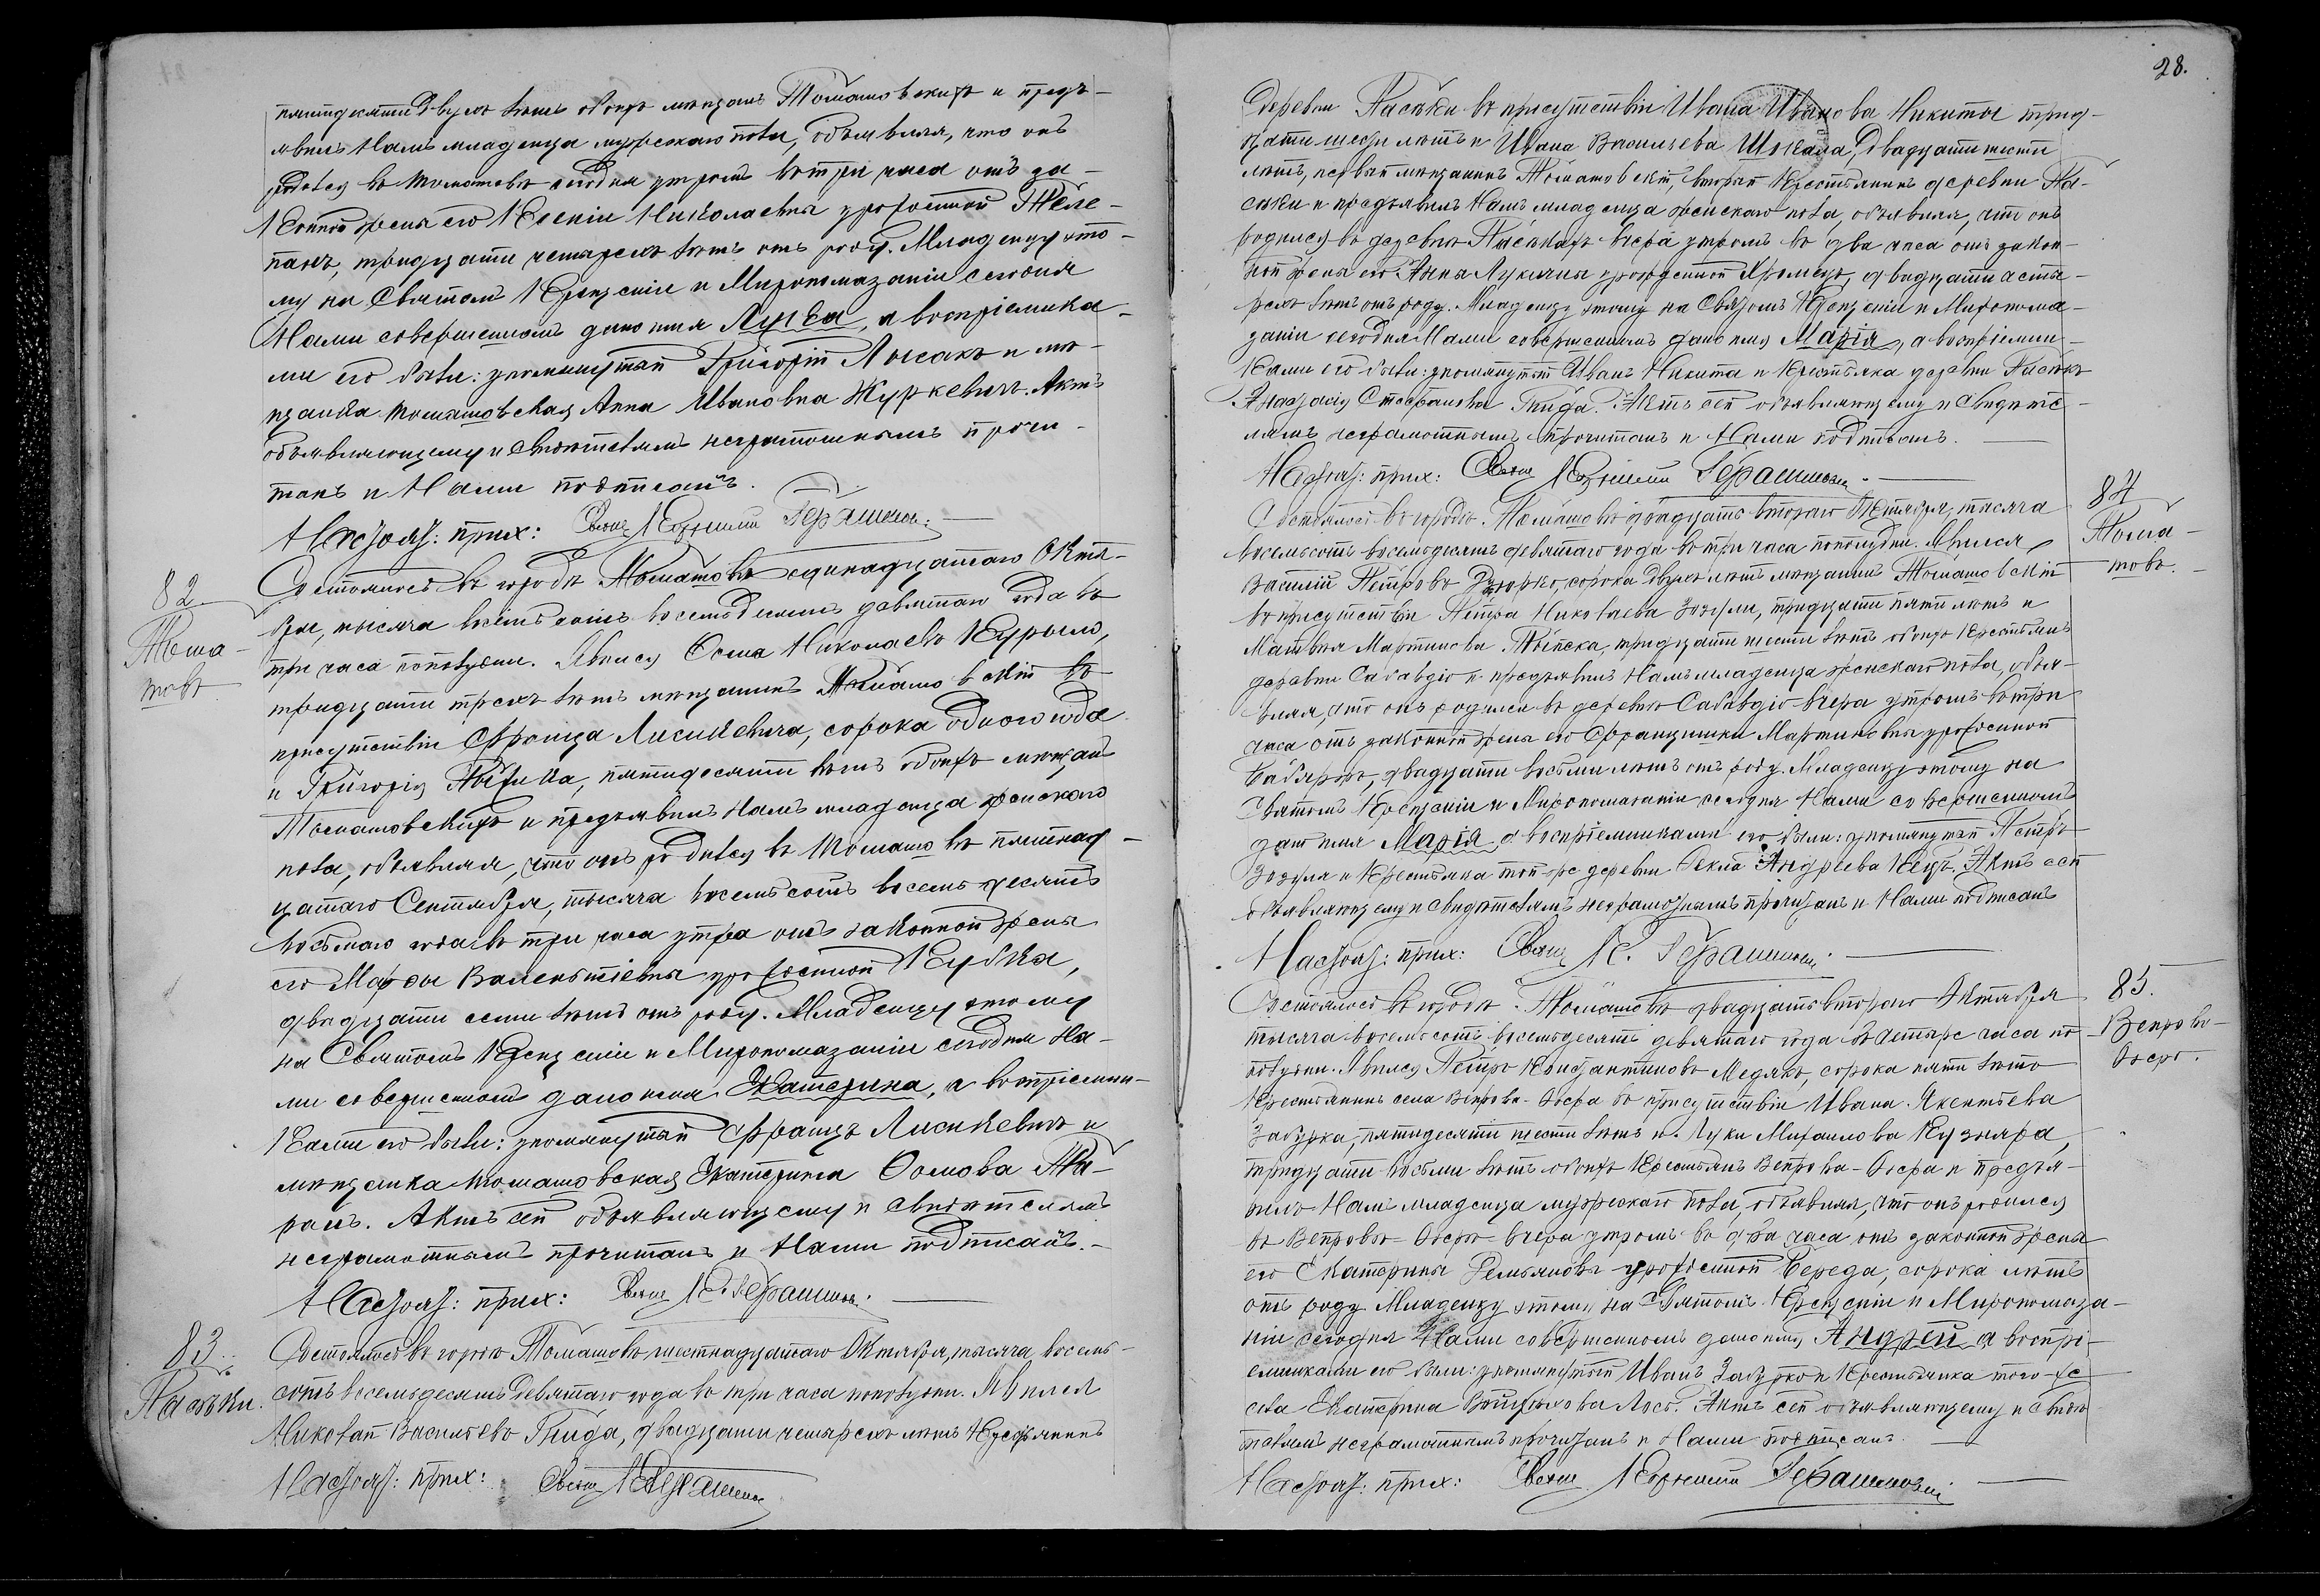 пятидесяти двухъ лѣтъ обоихъ мѣщанъ Томашовскихъ и предъ-
явилъ Намъ младенца мужескаго пола, объявляя, что онъ
родился въ Томашовѣ сегодня утромъ въ три часа отъ за-
конной жены его Ксеніи Николаевны урожденной
тридцати четырехъ лѣтъ отъ роду. Младенцу это-
му на Святомъ Крещеніи и Миропомазаніи сегодня
Нами совершенномъ дано имя Лука, а воспріемника-
ми его были: упомянутый Григорій Лысакъ и мѣ-
щанка томашовская Анна Ивановна Журкевичъ. Актъ
объявляющему и свидѣтелямъ неграмотнымъ прочи-
танъ и Нами подписанъ.
Настоят: прих: Свящ
82
Тома-
шовъ
Состоялось въ городѣ Томашовѣ одинадцатаго Октя-
бря, тысяча восемьсотъ восемьдесятъ девятаго года въ
три часа пополудни. Явился Осипъ Николаевъ Курыло,
тридцати трехъ лѣтъ мѣщанинъ Томашовскій въ
присутствіи Франца Лисикевича, сорока одного года
и Григорія пятидесяти лѣтъ обоихъ мѣщанъ
Томашовскихъ и предъявилъ Намъ младенца женскаго
пола, объявляя, что онъ родился въ Томашовѣ пятнад-
цатаго Сентября, тысяча восемьсотъ восемьдесятъ
восьмаго года въ три часа утра отъ законной жены
его Марѳы Валентіевны урожденной Кубка,
двадцати семи лѣтъ отъ роду. Младенцу этому
на Святомъ Крещеніи и Миропомазаніи сегодня На-
ми совершенномъ дано имя Екатерина, а воспріемни-
ками его были: упомянутый Францъ Лисикевичъ и
мѣщанка томашовская Екатерина Осипова
Актъ сей объявляющему и свидѣтелямъ
неграмотнымъ прочитанъ и Нами подписанъ.
Настоят: прих: Свящ К.
83.
Пасѣки.
Состоялось въ городѣ Томашовѣ шестнадцатаго Октября, тысяча восемь-
сотъ восемьдесятъ девятаго года въ три часа пополудни. Явился
Николай Васильевъ Гнида, двадцати четырехъ лѣтъ крестьянинъ
Настоят: прих: Свящ
28.
деревни Пасѣки въ присутствіи Ивана Иванова Никиты трид-
цати лѣтъ и Ивана Васильева двадцати шести
лѣтъ, первый мѣщанинъ Томашовскій, вторый крестьянинъ деревни Па-
сѣки и предъявилъ Намъ младенца женскаго пола, объявляя, что онъ
родился въ деревнѣ Пасѣкахъ вчера утромъ въ два часа отъ закон-
ной жены его Анны Лукичны урожденной двадцати четы-
рехъ лѣтъ отъ роду. Младенцу этому на Святомъ Крещеніи и Миропома-
заніи сегодня Нами совершенномъ дано имя Марія, а воспріемни-
ками его были: упомянутый Иванъ Никита и крестьянка деревни Пасѣкъ
Анастасія Стефанова Гнида. Актъ сей объявляющему и свидѣте-
лямъ неграмотнымъ прочитанъ и Нами подписанъ.
Настоят: прих: Свящ
84
Тома-
шовъ.
Состоялось въ городѣ Томашовѣ двадцать втораго Октября, тысяча
восемьсотъ восемьдесятъ девятаго года въ три часа пополудни. Явился
Василій Петровъ сорока двухъ лѣтъ мѣщанинъ Томашовскій
въ присутствіи Петра Николаева Зозули, тридцати пяти лѣтъ и
Матвѣя Мартинова тридцати шести лѣтъ обоихъ крестьянъ
деревни и предъявилъ Намъ младенца женскаго пола, объя-
вляя, что онъ родился въ деревнѣ вчера утромъ въ три
часа отъ законной жены его Францишки Мартиновны урожденной
двадцати восьми лѣтъ отъ роду. Младенцу этому на
Святомъ Крещеніи и Миропомазаніи сегодня Нами совершенномъ
дано имя Марія, а воспріемниками его были: упомянутый Петръ
Зозуля и крестьянка той-же деревни Ѳекла Андреева Актъ сей
объявляющему и свидѣтелямъ неграмотнымъ прочитанъ и Нами подписанъ
Настоят: прих: Свящ К.
85.
Вепрово-
Озеро.
Состоялось въ городѣ Томашовѣ двадцать втораго Октября
тысяча восемьсотъ восемьдесятъ девятаго года въ четыре часа по-
полудни. Явился Петръ Константиновъ Медякъ, сорока пяти лѣтъ
крестьянинъ села Вепрова-Озера въ присутствіи Ивана
Забурка, пятидесяти шести лѣтъ и Луки Михаилова Кузняра,
тридцати восьми лѣтъ обоихъ крестьянъ Вепрова-Озера и предъя-
вилъ Намъ младенца мужескаго пола, объявляя, что онъ родился
въ Вепровѣ-Озерѣ вчера утромъ въ два часа отъ законной жены
его Екатерины урожденной Береда, сорока лѣтъ
отъ роду. Младенцу этому на Святомъ Крещеніи и Миропомаза-
ніи сегодня Нами совершенномъ дано имя Андрей, а воспрі-
емниками его были: упомянутый Иванъ Забурко и крестьянка того-же
села Екатерина Актъ сей объявляющему и свидѣ-
телямъ неграмотнымъ прочитанъ и Нами подписанъ.
Настоят: прих: Свящ